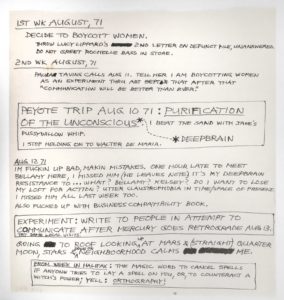 1ST WK AUGUST, 71
DECIDE TO BOYCOTT WOMEN.
THROW LUCY LIPPARD'S 2ND LETTER ON DEFUNCT PILE, UNANSWERED.
DO NOT GREET ROCHELLE BASS IN STORE.
2ND WK. AUGUST, 71
PAULA TAVINS CALLS AUG 11. TELL HER I AM BOYCOTTING WOMEN
AS AN EXPERIMENT THRU ABT SEPT & THAT AFTER THAT
"COMMUNICATION WILL BE BETTER THAN EVER."
PEYOTE TRIP AUG 10 71: PURIFICATION
OF THE UNCONSCIOUS* I BEAT THE SAND WITH JANE'S
PUSSYWILLOW WHIP.
I STOP HOLDING ON TO WALTER DE MARIA.
*DEEPBRAIN
AUG 12 71
IM FUCKIN UP BAD, MAKIN MISTAKES, ONE HOUR LATE TO MEET
BELLAMY HERE, I MISSED HIM (HE LEAVES NOTE) IT'S MY DEEPBRAIN
RESISTANCE TO ... WHAT? BELLAMY? KELSEY? DO I WANT TO LOSE
MY LOFT FOR ACTION? UTTER CLAUSTROPHOBIA IN TIME/SPACE
I MISSED HIM ALL LAST WEEK TOO.
ALSO FUCKED UP WITH BUSINESS COMPATIBILITY BOOK.
EXPERIMENT: WRITE TO PEOPLE IN ATTEMPT TO
COMMUNICATE AFTER MERCURY GOES RETROGRADE AUG 13.
GOING TO ROOF LOOKING UP AT MARS & (STRAIGHT) QUARTER
MOON, STARS & NEIGHBORHOOD CALMS ME.
FROM WEEK IN HALIFAX: THE MAGIC WORD TO CANCEL SPELLS
IF ANYONE TRIES TO LAY A SPELL ON YOU, OR TO COUNTERACT A
WITCH'S POWER: YELL: ORTHOGRAPHY!